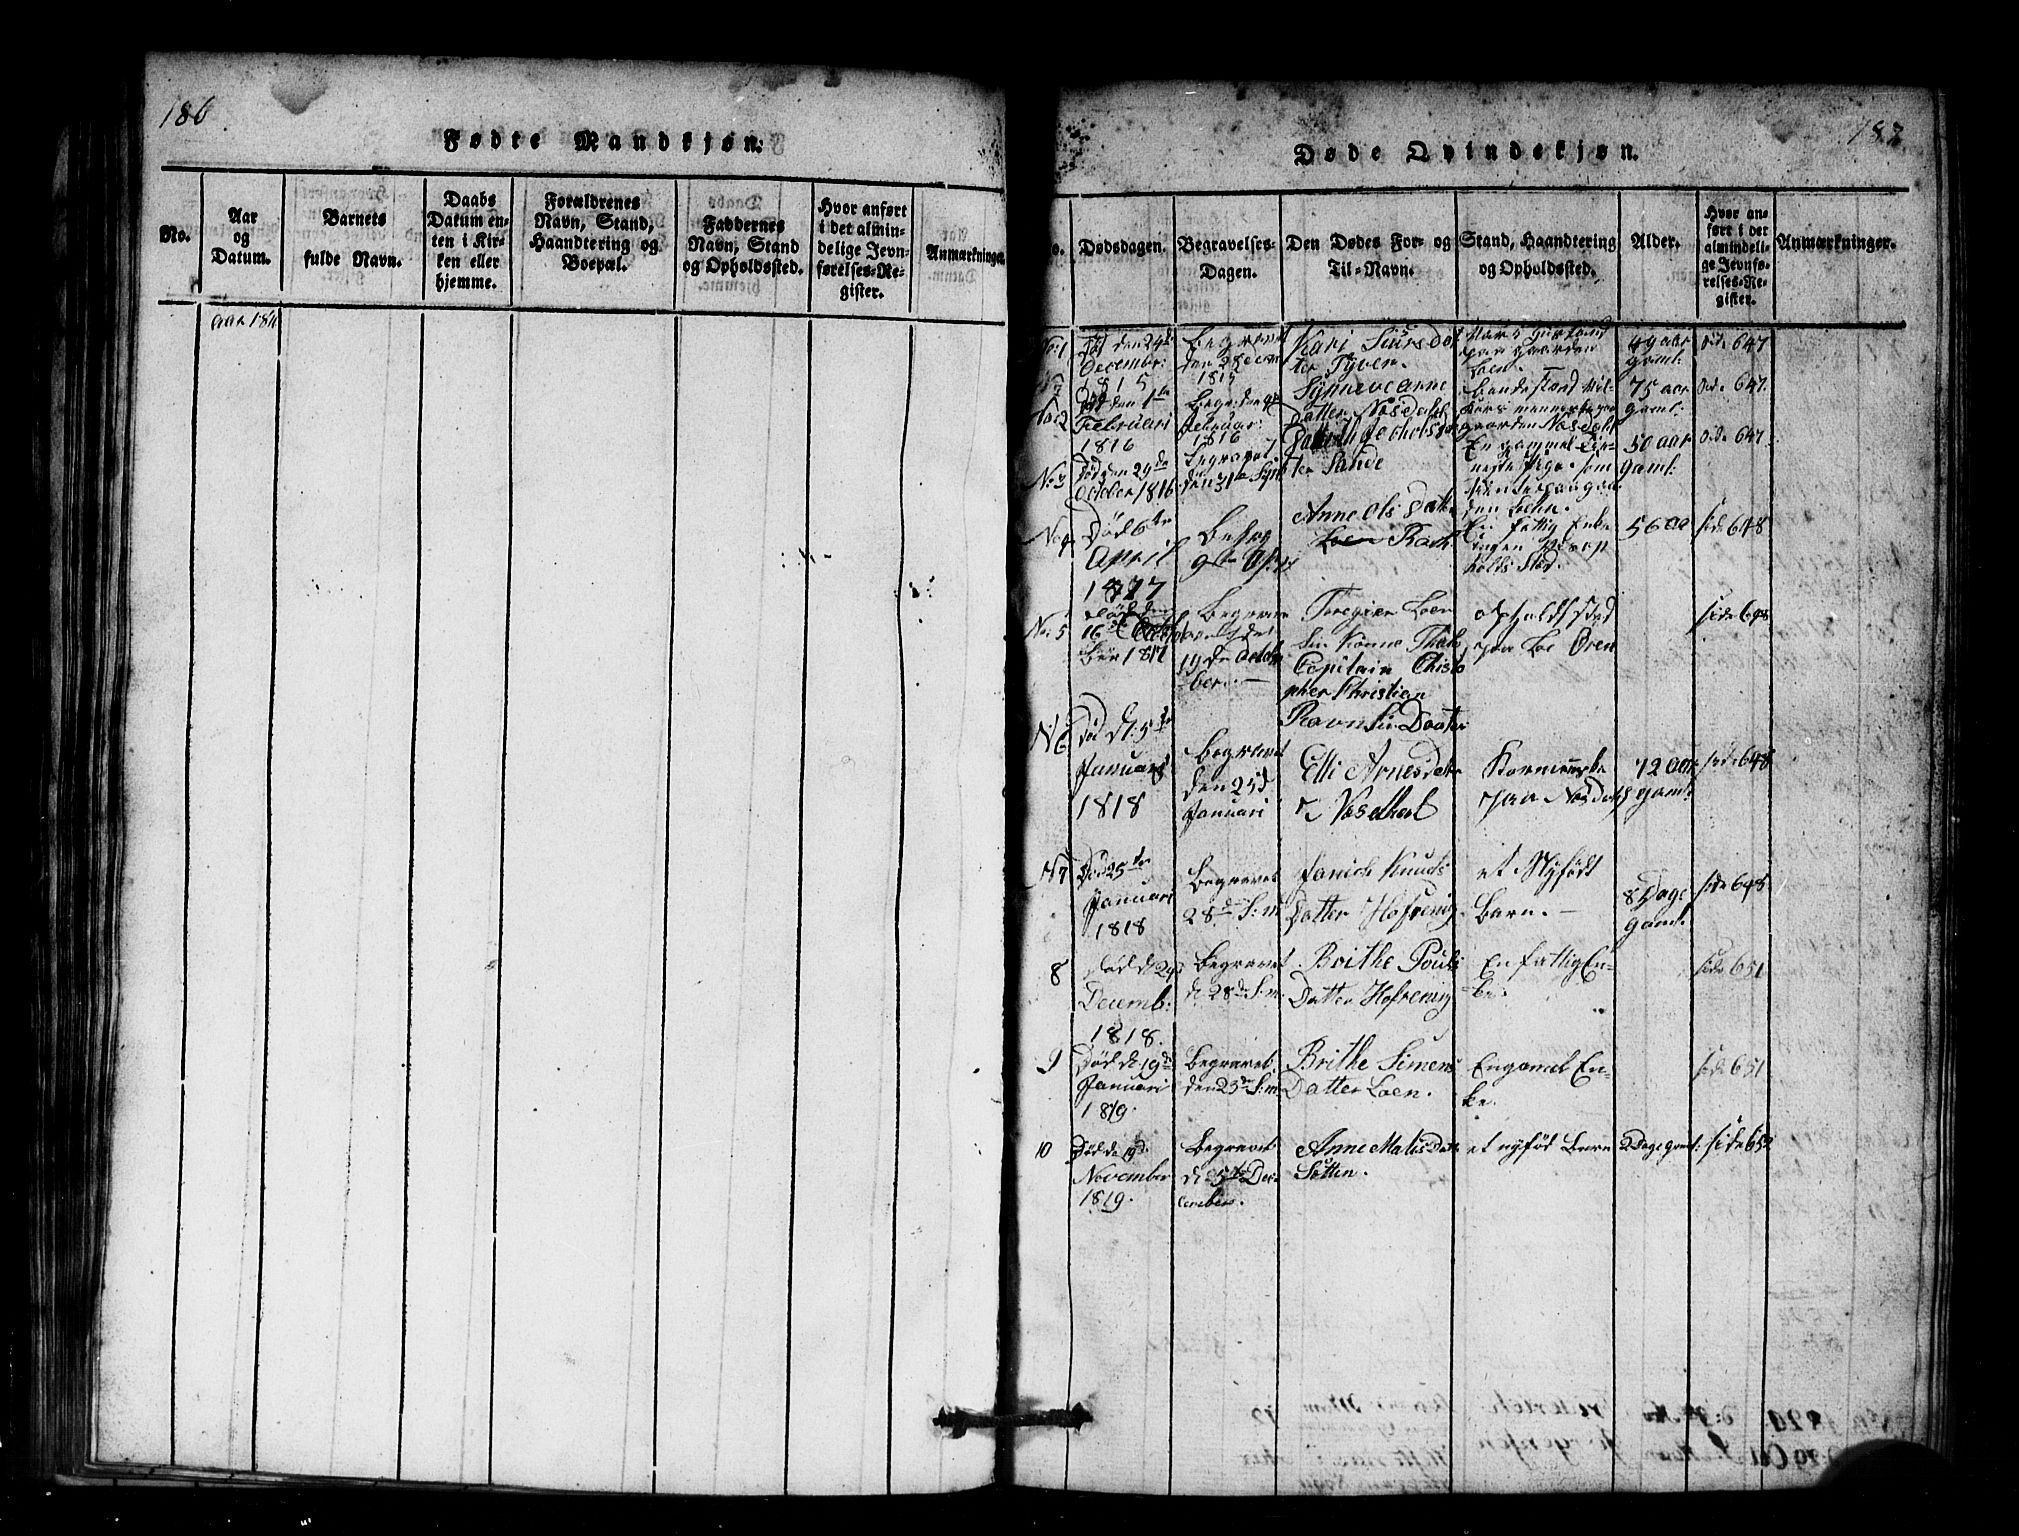 186
Fødte Mandkjøn.
No.
Aar
og
Datum.
Barnets
fulde Navn.
Daabs
Datum en-
ten i Kir-
ken eller
hjemme.
Forældrenes
Navn, Stand,
Haandtering og
Boepæl.
Faddernes
Navn, Stand
og Opholdssted.
Hvor anført
i det almin-
delige Jevn-
førelses-Re-
gister.
Anmærkninger
Aar 1816
187
Døde Qvindekjøn.
o.
Dødsdagen.
Begravelses-
Dagen.
Den Dødes For- og
Til-Navn.
Stand, Haandtering
og Opholdssted.
Alder.
Hvor an-
ført i det
almindeli-
ge Jevnfø-
relses-Re-
gister.
Anmærkninger.
No: 1
Død den 24de
Decembr:
1815
Begravet
den 28 Decem
1815
Kari Siursdo
ter Tyven.
paa Gaarden
Loen.
49 aar
gaml:
Side 647
No: 2
Død den 1te
Februari
1816
Begr: den
Februar:
1816
Synneve Arne
Datter Nosedahl
75 aar
gaml:
Side 647
No 3
Død den 29de
October 1816
Begravet
ter Sande
En gammel
50 aar
gaml:
Side 647
No 4
Død 6te
April
1817
Begrav
9de April
Anne Ols Datter
Loen
En fattig Enke
56 aar
side 648
No: 5
16de
ber 1817
Begrave
19de Octo
ber.
Loen
Capitain Christo
pher Christian
Ravn Sin Daater
Opholdssted
paa Loe Øren
side 648
N 6
Død d: 5te
Januari
1818
Begravet
den 25d
Januari
Elli Arnesdatte
r Nosedhal
paa Nosdahl
72 aar
gaml:
side 648
N 7
Død 25de
Januari
1818
Begravet
28de S:m.
Janich Knuds
Datter Hofrenig
et Nyfødt
Barn.
8 Dage
gaml.
side 648
8
Død d: 29
Decemb:
1818.
Begravet
d: 28de S:m.
Brithe Pouls
Datter Hofrenig
En fattig En-
ke.
side 651
9
Død de 19de
Januari
1819.
Begravet
den 25de S:m.
Brithe Simens
Datter Loen.
En gamel En-
ke.
side 651
10
Død de 19d:
November
1819.
Begravet
d: 5te De
cember.
Anne Matis Datter
Sætten.
et nyfød Barn
2 Dage gaml:
side 652